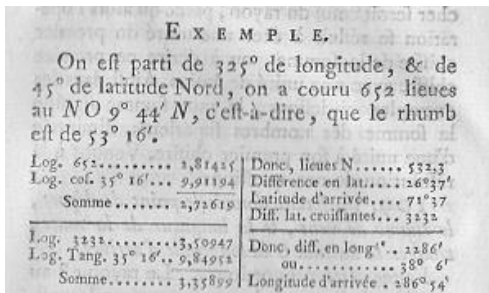 EXEMPLE.
On est parti de 325° de longitude, & de
45° de latitude Nord, on a couru 652 lieues
au NO 9° 44' N, c'est-à-dire, que le rhumb
est de 53° 16'.
Log. 652......... 2,81425
Log. cos. 35° 16'... 9,91194
Somme....... 2,72619
Log. 3232.........3,50947
Log. Tang. 35° 16'.. 9,84952
Somme.... 3,35899
Donc, lieues N...... 532,3
Différence en lat..... 26°37'
Latitude d'arrivée.. 71°37
Diff. lat. croissantes... 3232
Donc, diff. en long.. 2286'
ou........... 38° 6'
Longitude d'arrivée . 286°54'